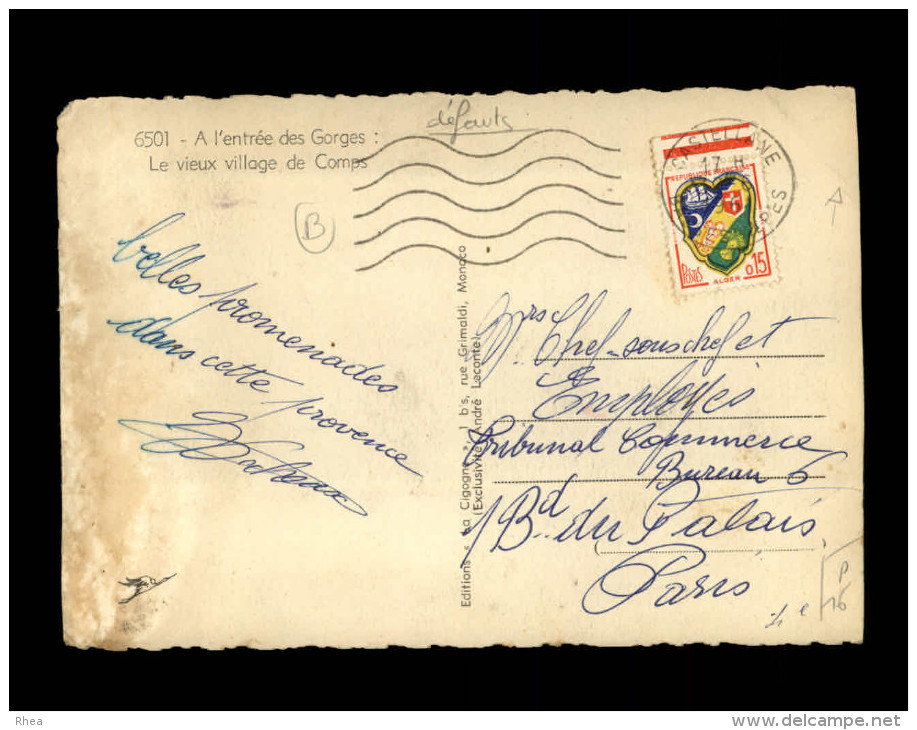 6501 - A l'entrée des Gorges :
Le vieux village de Comps
défauts
B
belles promenades
dans cette provence
Editions « La Cigogne », 1 bis, rue Grimaldi, Monaco
(Exclusivité André Leconte)
CASTELLANE
17 H
REPUBLIQUE FRANÇAISE
POSTES
ALGER
0,15
Mrs Chef - sous chef et
Employés
Tribunal Commerce
Bureau 6
1 Bd du Palais
Paris
P
16
Rhea
www.delcampe.net